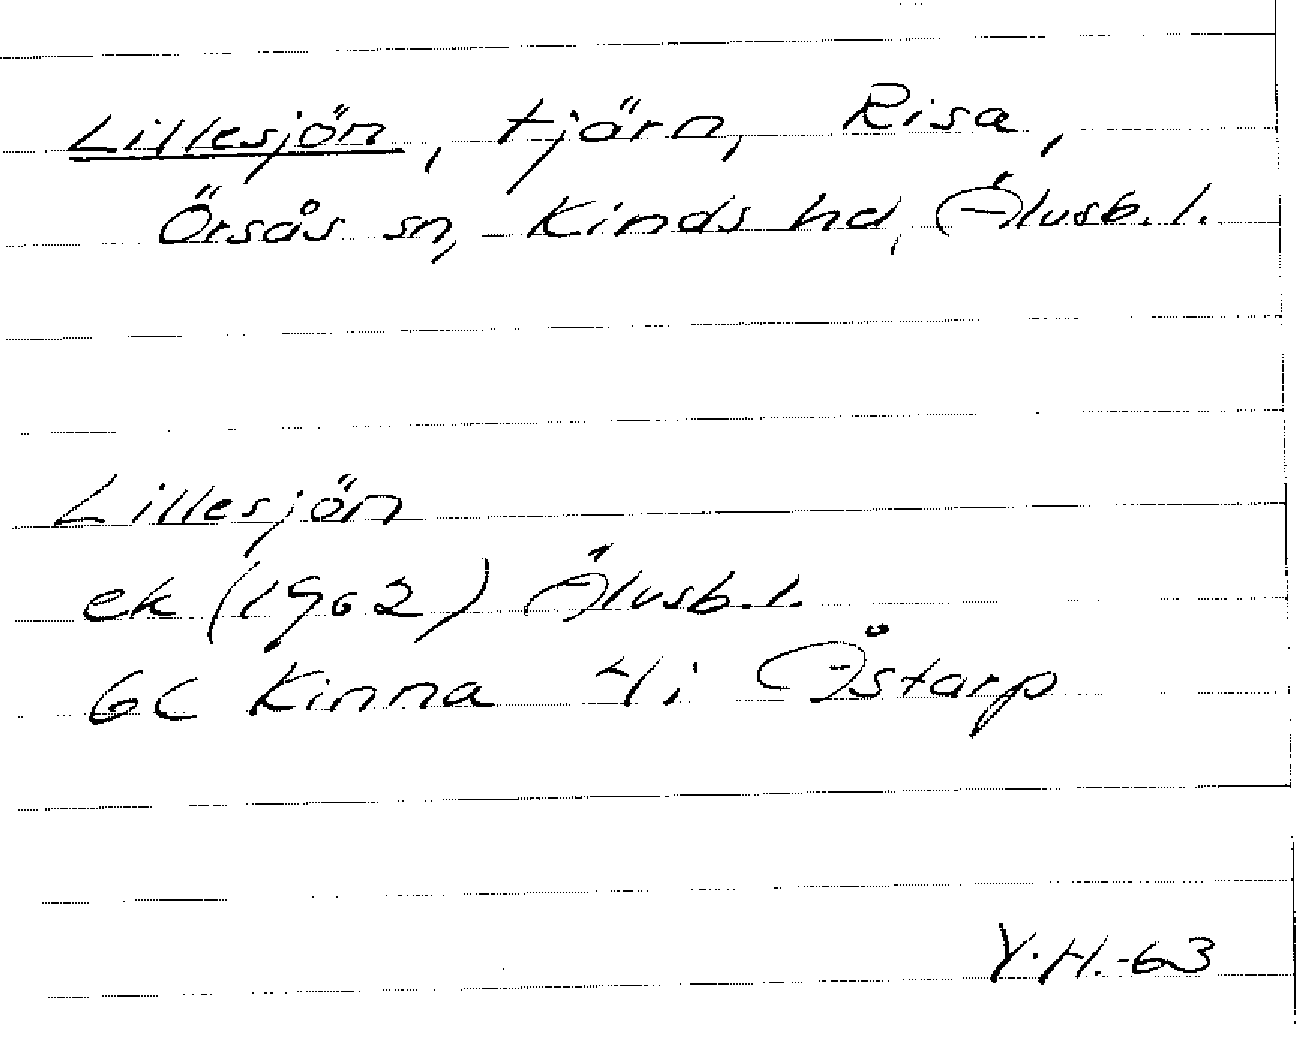 Lillesjön, tjärn, Risa,
Örsås sn, Kinds hd, Älvsb.l.
Lillesjön
ek (1962) Älvsb.l.
6C Kinna 4i Åstarp
Y.H.-63